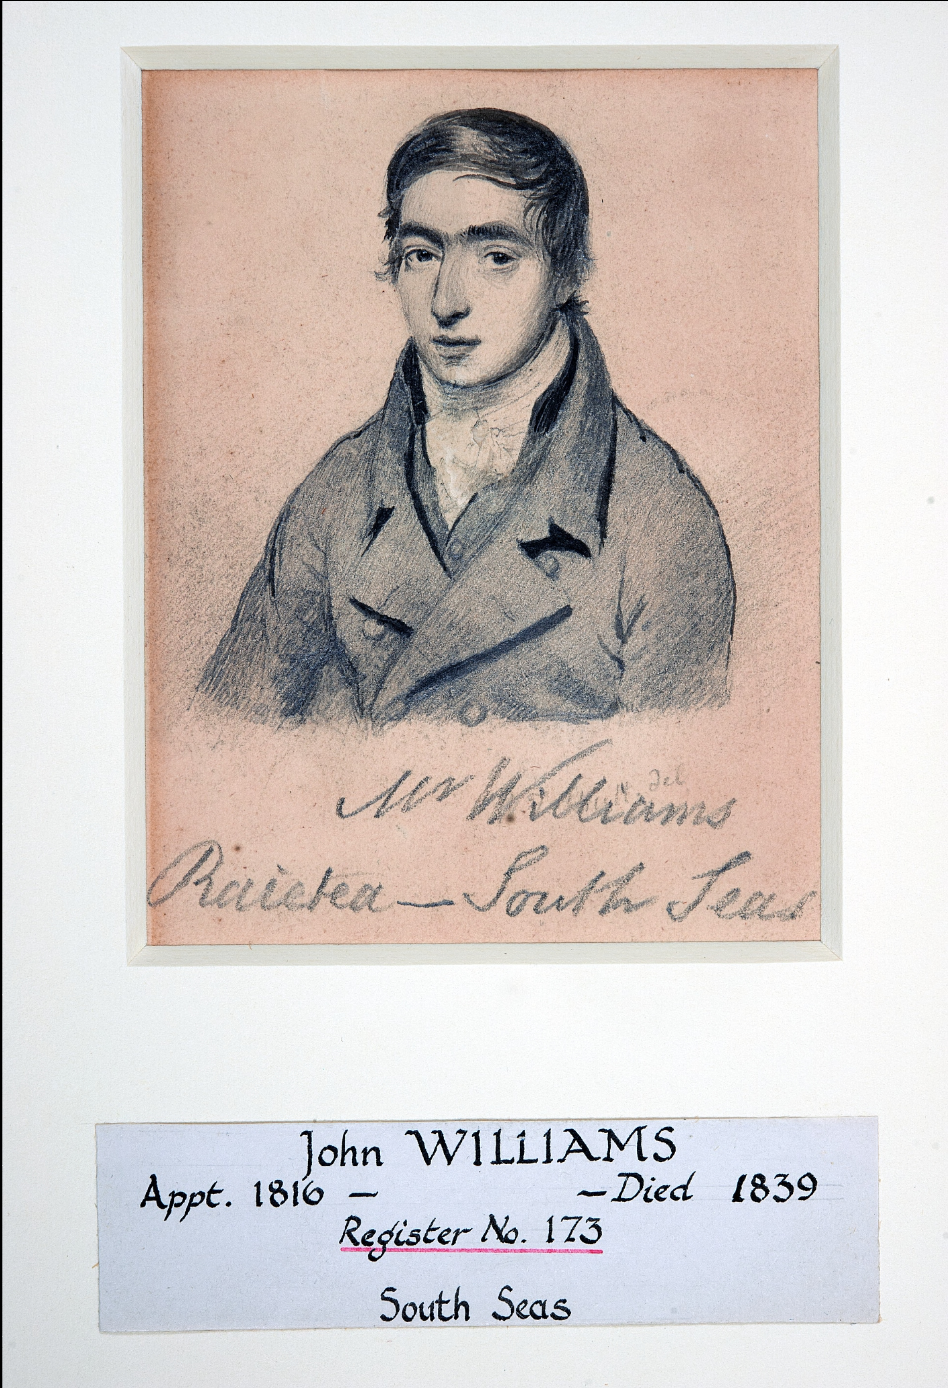 Mr Williams
Raiatea — South Seas
John WILLIAMS
Appt. 1816 — — Died 1839
Register No. 173
South Seas